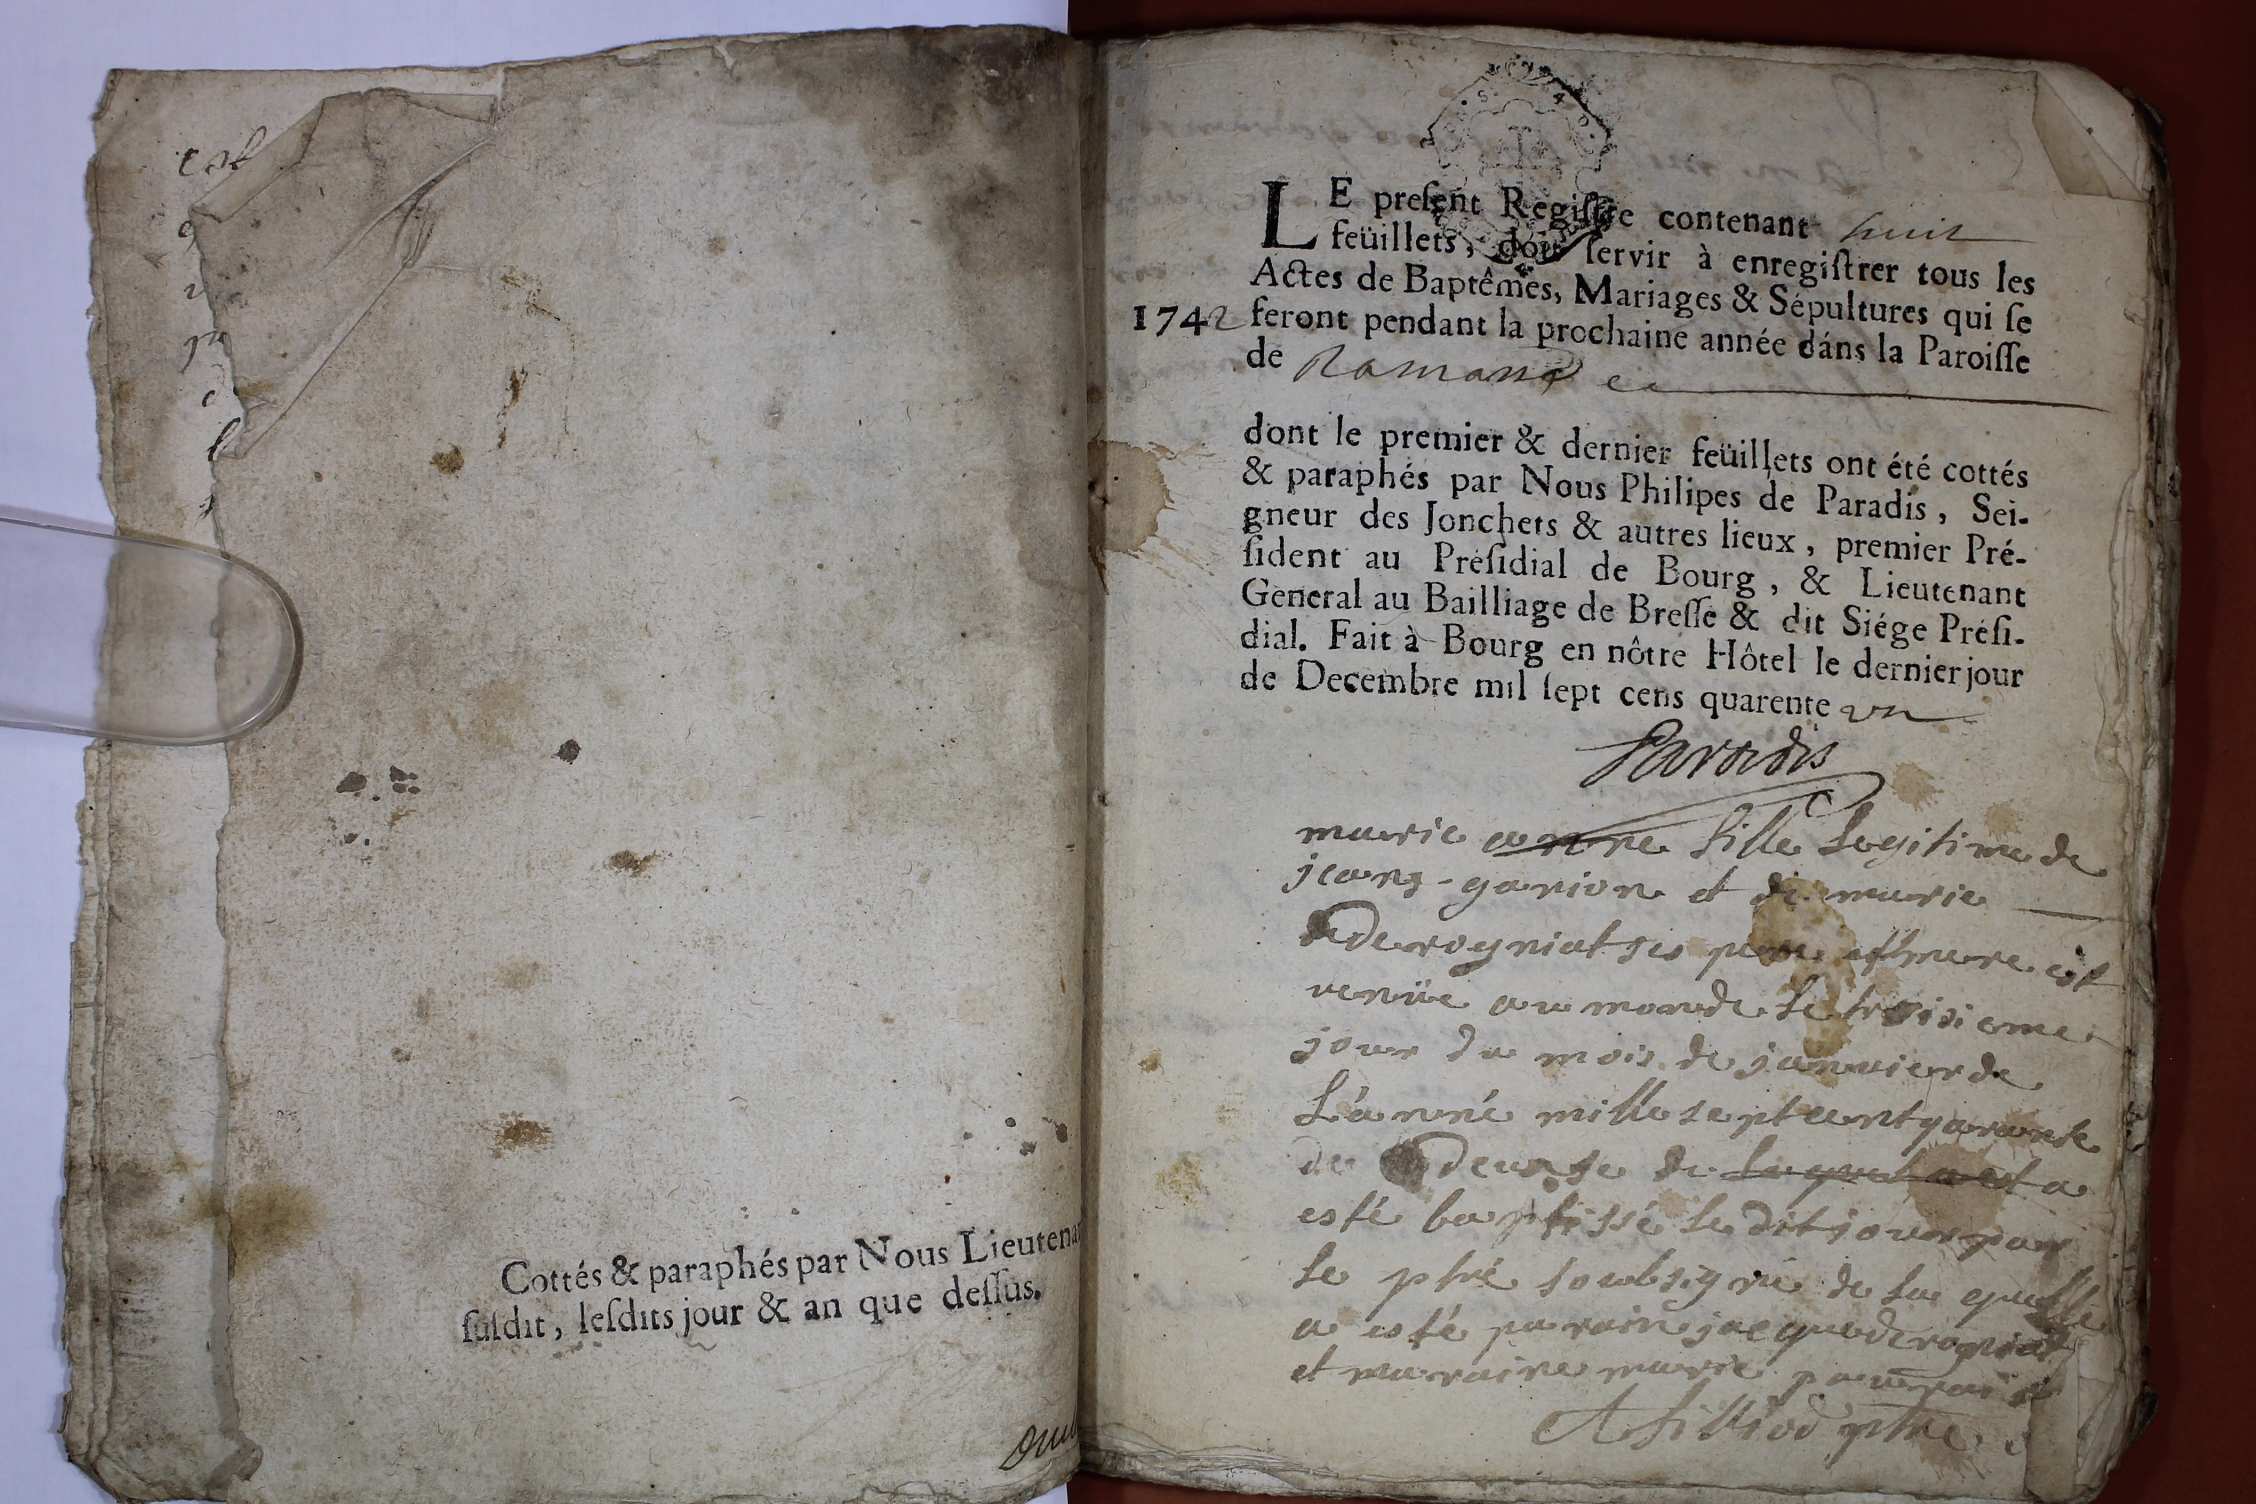 Cottés & paraphés par Nous Lieutenan
ſuſdit, leſdits jour & an que deſſus.
LE preſent Regiſtre contenant huit
feüillets, doit ſervir à enregiſtrer tous les
Actes de Baptêmes, Mariages & Sépultures qui ſe
1742 feront pendant la prochaine année dáns la Paroiſſe
de
dont le premier & dernier feüillets ont été cottés
& paraphés par Nous Philipes de Paradis, Sei-
gneur des Jonchets & autres lieux, premier Pré-
ſident au Préſidial de Bourg, & Lieutenant
General au Bailliage de Breſſe & dit Siége Préſi-
dial. Fait à Bourg en nôtre Hôtel le dernier jour
de Decembre mil ſept cens quarente un
Paradis
marie anne fille legitime de
jean garion et de marie
derogniat ses pere et mere est
venüe au monde le troisieme
jour du mois de janvier de
l'année mille sept cent quarante
de
esté baptissé le dit jour par
le ptre soubsigné de la quelle
a esté parain jacque derogniat
et maraine marie